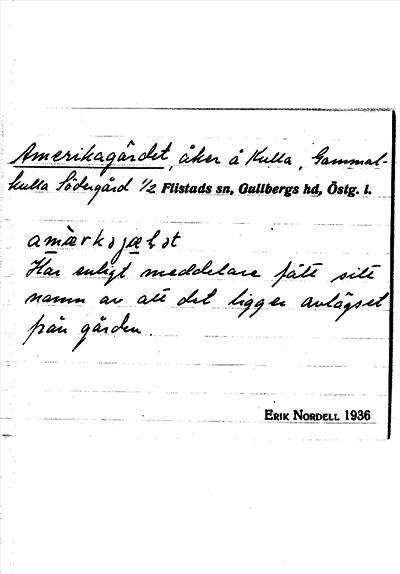 Amerikagärdet, åker å Kulla, Gammal-
kulla Södergård 1/2 Flistads sn, Gullbergs hd, Östg. l.
Har enligt meddelare fått sitt
namn av att det ligger avlägset
från gården.
ERIK NORDELL 1936